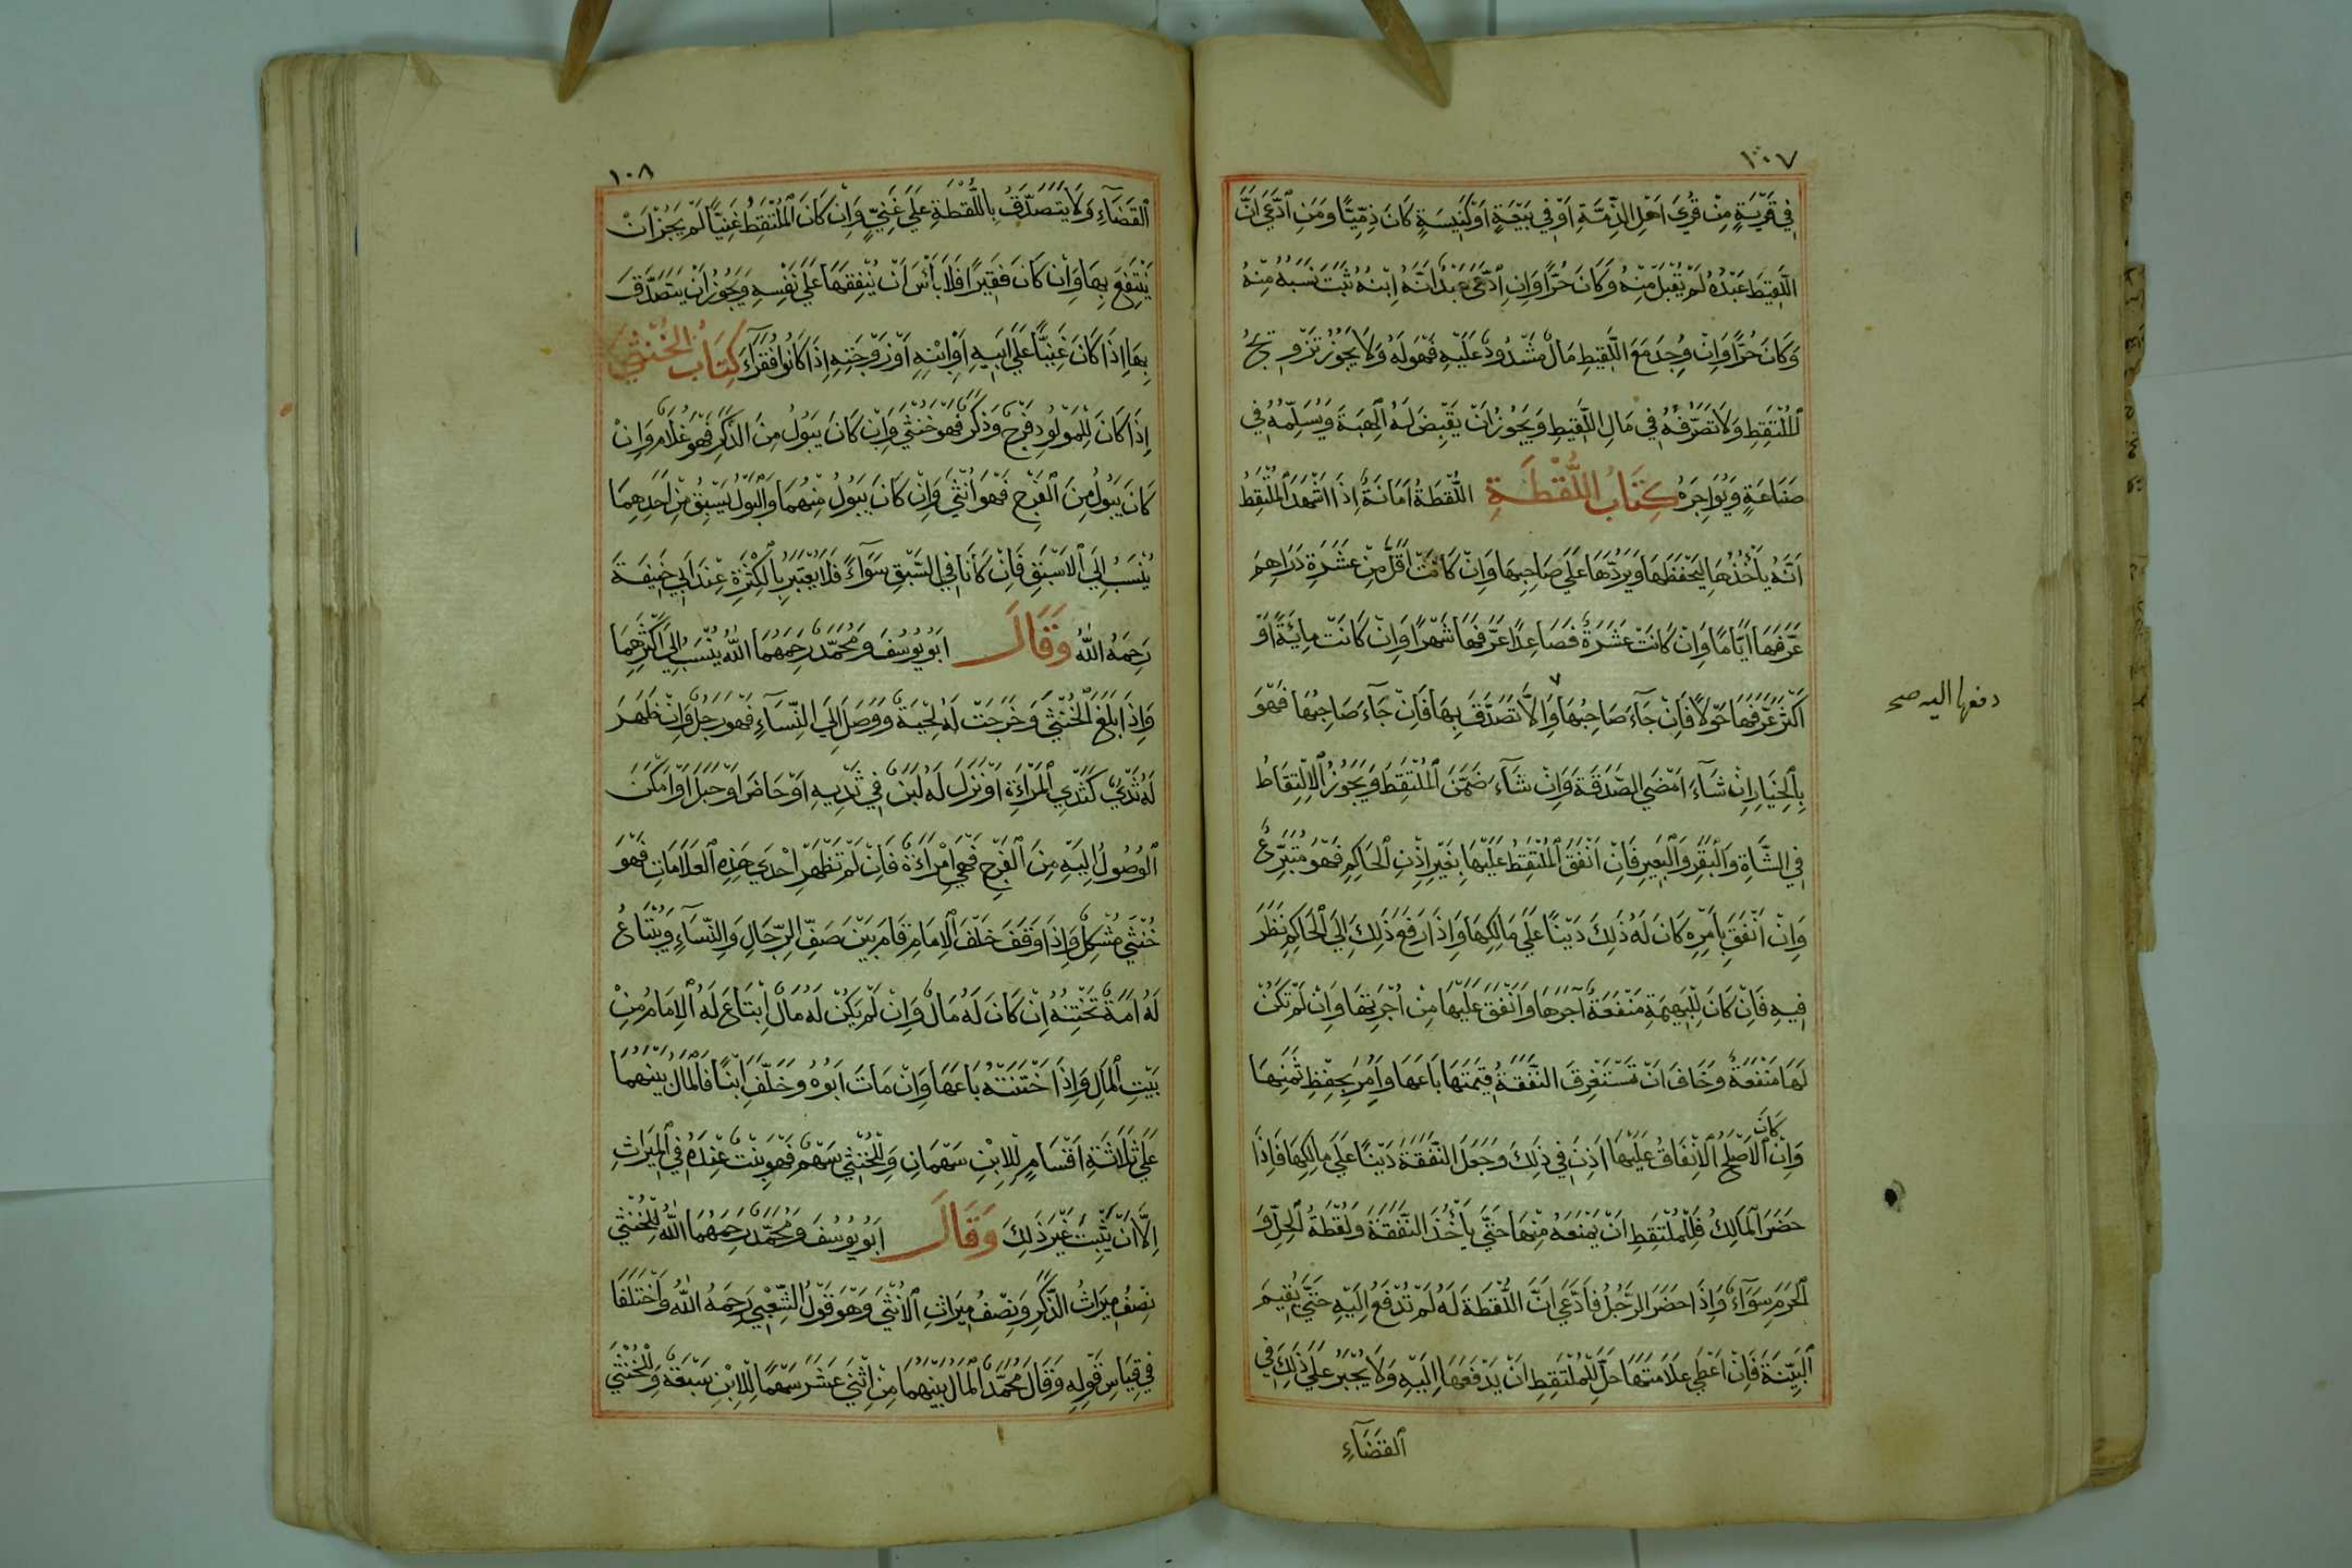 ١٠٧
فِي قَرْيَةٍ مِنْ قُرَى اَهْلِ الذِّمَّةِ اَوْ فِي بَيْعَةٍ اَوْ كَنِيسَةٍ كَانَ ذِمِّيًّا وَمَنِ ادَّعَى اَنَّ
اللَّقِيطَ عَبْدُهُ لَمْ يُقْبَلْ مِنْهُ وَكَانَ حُرًّا وَاِنِ ادَّعَى عَبْدٌ اَنَّهُ اِبْنُهُ ثَبَتَ نَسَبُهُ مِنْهُ
وَكَانَ حُرًّا وَاِنْ وُجِدَ مَعَ اللَّقِيطِ مَالٌ مَشْدُودٌ عَلَيْهِ فَهُوَ لَهُ وَلَا يَجُوزُ تَزْوِيجُ
الْمُلْتَقِطِ وَلَا تَصَرُّفُهُ فِي مَالِ اللَّقِيطِ وَيَجُوزُ اَنْ يَقْبِضَ لَهُ الْهِبَةَ وَيُسَلِّمُهُ فِي
صَنَاعَةٍ وَيُوَاجِرَهُ كِتَابُ اللُّقْطَةِ اللُّقَطَةُ اَمَانَةٌ اِذَا اشْهَدَ الْمُلْتَقِطُ
اَنَّهُ يَأْخُذُهَا لِيَحْفَظَهَا وَيَرُدَّهَا عَلَى صَاحِبِهَا وَاِنْ كَانَتْ اَقَلَّ مِنْ عَشَرَةِ دَرَاهِمَ
عَرَّفَهَا اَيَّامًا وَاِنْ كَانَتْ عَشَرَةً فَصَاعِدًا عَرَّفَهَا شَهْرًا وَاِنْ كَانَتْ مِائَةً اَوْ
اَكْثَرَ عَرَّفَهَا حَوْلًا فَاِنْ جَآءَ صَاحِبُهَا وَاِلَّا تَصَدَّقَ بِهَا فَاِنْ جَآءَ صَاحِبُهَا فَهُوَ
دفعها اليه صح
بِالْخِيَارِ اِنْ شَآءَ اَمْضَى الصَّدَقَةَ وَاِنْ شَآءَ ضَمَّنَ الْمُلْتَقِطَ وَيَجُوزُ الْاِلْتِقَاطُ
فِي الشَّاةِ وَالْبَقَرِ وَالْبَعِيرِ فَاِنْ اَنْفَقَ الْمُلْتَقِطُ عَلَيْهَا بِغَيْرِ اِذْنِ الْحَاكِمِ فَهُوَ مُتَبَرِّعٌ
وَاِنْ اَنْفَقَ بِاَمْرِهِ كَانَ لَهُ ذَلِكَ دَيْنًا عَلَى مَالِكِهَا وَاِذَا رَفَعَ ذَلِكَ اِلَى الْحَاكِمِ نَظَرَ
فِيهِ فَاِنْ كَانَ لِلْبَهِيمَةِ مَنْفَعَةٌ آجَرَهَا وَاَنْفَقَ عَلَيْهَا مِنْ اُجْرَتِهَا وَاِنْ لَمْ تَكُنْ
لَهَا مَنْفَعَةٌ وَخَافَ اَنْ تَسْتَغْرِقَ النَّفَقَةُ قِيمَتَهَا بَاعَهَا وَاَمَرَ بِحِفْظِ ثَمَنِهَا
كَانَ
وَاِنْ الْاَصْلَحُ الْاِنْفَاقُ عَلَيْهَا اَذِنَ فِي ذَلِكَ وَجَعَلَ النَّفَقَةَ دَيْنًا عَلَى مَالِكِهَا فَاِذَا
حَضَرَ الْمَالِكُ فَلِلْمُلْتَقِطِ اَنْ يَمْنَعَهُ مِنْهَا حَتَّى يَأْخُذَ النَّفَقَةَ وَلُقْطَةُ الْحِلِّ وَ
الْحَرَمِ سَوَآءٌ وَاِذَا حَضَرَ الرَّجُلُ فَادَّعَى اَنَّ اللُّقْطَةَ لَهُ لَمْ تُدْفَعْ اِلَيْهِ حَتَّى يُقِيمَ
الْبَيِّنَةَ فَاِنْ اَعْطَى عَلَامَتَهَا حَلَّ لِلْمُلْتَقِطِ اَنْ يَدْفَعَهَا اِلَيْهِ وَلَا يُجْبَرُ عَلَى ذَلِكَ فِي
الْقَضَآءِ
١٠٨
الْقَضَآءِ وَلَا يَتَصَدَّقُ بِاللُّقْطَةِ عَلَى غَنِيٍّ وَاِنْ كَانَ الْمُلْتَقِطُ غَنِيًّا لَمْ يَجُزْ اَنْ
يَنْتَفِعَ بِهَا وَاِنْ كَانَ فَقِيرًا فَلَا بَأْسَ اَنْ يُنْفِقَهَا عَلَى نَفْسِهِ وَيَجُوزُ اَنْ يَتَصَدَّقَ
بِهَا اِذَا كَانَ غَنِيًّا عَلَى اَبِيهِ اَوِ ابْنِهِ اَوْ زَوْجَتِهِ اِذَا كَانُوا فُقَرَآءَ كِتَابُ الْخُنْثَى
اِذَا كَانَ لِلْمَوْلُودِ فَرْجٌ وَذَكَرٌ فَهُوَ خُنْثَى وَاِنْ كَانَ يَبُولُ مِنَ الذَّكَرِ فَهُوَ غُلَامٌ وَاِنْ
كَانَ يَبُولُ مِنَ الْفَرْجِ فَهُوَ اُنْثَى وَاِنْ كَانَ يَبُولُ مِنْهُمَا وَالْبَوْلُ يَسْبِقُ مِنْ اَحَدِهِمَا
يُنْسَبُ اِلَى الْاَسْبَقِ فَاِنْ كَانَا فِي السَّبْقِ سَوَآءً فَلَا يُعْتَبَرُ بِالْكَثْرَةِ عِنْدَ اَبِي حَنِيفَةَ
رَحِمَهُ اللّٰهُ وَقَالَ اَبُو يُوسُفَ وَمُحَمَّدٌ رَحِمَهُمَا اللّٰهُ يُنْسَبُ اِلَى اَكْثَرِهِمَا
وَاِذَا بَلَغَ الْخُنْثَى وَخَرَجَتْ لَهُ لِحْيَةٌ وَوَصَلَ اِلَى النِّسَآءِ فَهُوَ رَجُلٌ وَاِنْ ظَهَرَ
لَهُ ثَدْيٌ كَثَدْيِ الْمَرْاَةِ اَوْ نَزَلَ لَهُ لَبَنٌ فِي ثَدْيِهِ اَوْ حَاضَ اَوْ حَبَلَ اَوْ اَمْكَنَ
الْوُصُولُ اِلَيْهِ مِنَ الْفَرْجِ فَهِيَ امْرَاَةٌ فَاِنْ لَمْ تَظْهَرْ اِحْدَى هَذِهِ الْعَلَامَاتِ فَهُوَ
خُنْثَى مُشْكِلٌ وَاِذَا وَقَفَ خَلْفَ الْاِمَامِ قَامَ بَيْنَ صَفِّ الرِّجَالِ وَالنِّسَآءِ وَيُبْتَاعُ
لَهُ اَمَةٌ تَخْتِنُهُ اِنْ كَانَ لَهُ مَالٌ وَاِنْ لَمْ يَكُنْ لَهُ مَالٌ اِبْتَاعَ لَهُ الْاِمَامُ مِنْ
بَيْتِ الْمَالِ وَاِذَا خَتَنَتْهُ بَاعَهَا وَاِنْ مَاتَ اَبُوهُ وَخَلَّفَ ابْنًا فَالْمَالُ بَيْنَهُمَا
عَلَى ثَلَاثَةِ اَقْسَامٍ لِلْاِبْنِ سَهْمَانِ وَلِلْخُنْثَى سَهْمٌ فَهُوَ بِنْتٌ عِنْدَهُ فِي الْمِيرَاثِ
اِلَّا اَنْ يَثْبُتَ غَيْرُ ذَلِكَ وَقَالَ اَبُو يُوسُفَ وَمُحَمَّدٌ رَحِمَهُمَا اللّٰهُ لِلْخُنْثَى
نِصْفُ مِيرَاثِ الذَّكَرِ وَنِصْفُ مِيرَاثِ الْاُنْثَى وَهُوَ قَوْلُ الشَّعْبِي رَحِمَهُ اللّٰهُ وَاخْتَلَفَا
فِي قِيَاسِ قَوْلِهِ وَقَالَ مُحَمَّدٌ الْمَالُ بَيْنَهُمَا مِنْ اِثْنَيْ عَشَرَ سَهْمًا لِلْاِبْنِ سَبْعَةٌ وَلِلْخُنْثَى